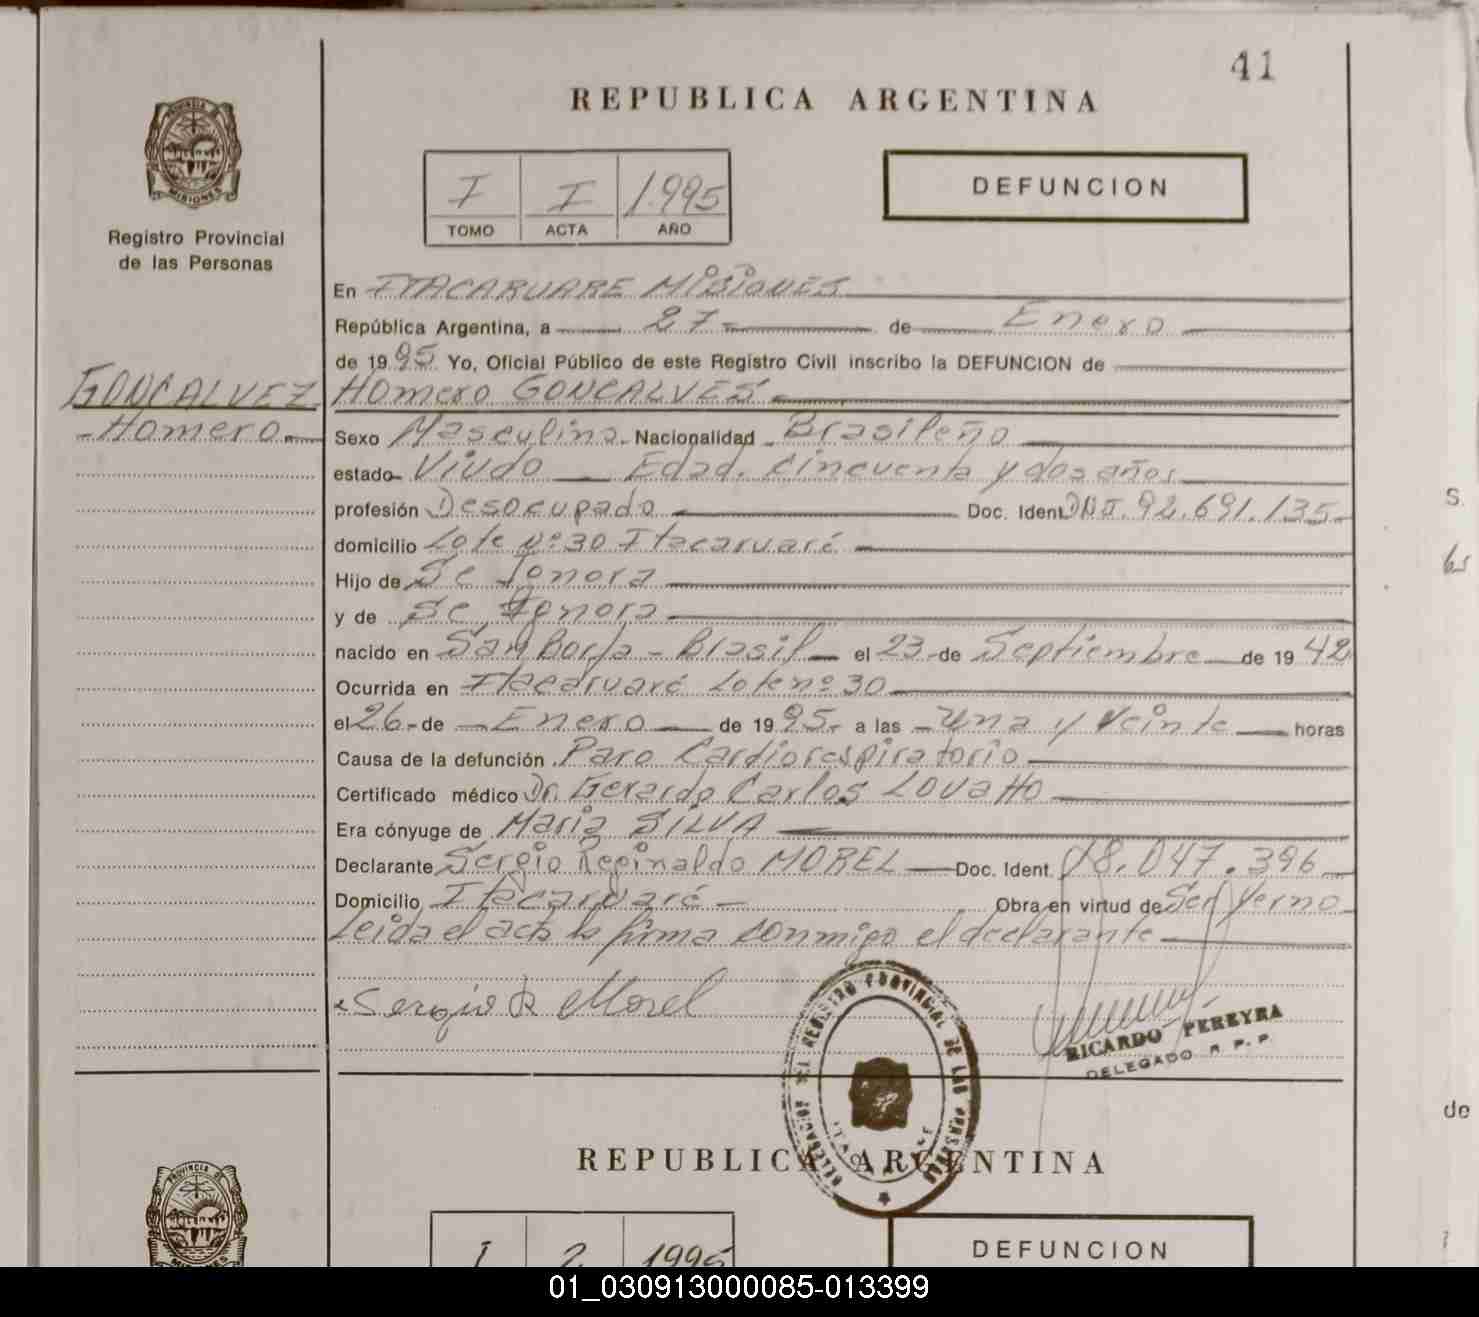 41
REPUBLICA ARGENTINA
I I 1.995
TOMO ACTA AÑO
DEFUNCION
PROVINCIA DE
MISIONES
Registro Provincial
de las Personas
GONCALVEZ
Homero
En ITACARUARE MISIONES
República Argentina, a 27 de Enero
de 1995 Yo, Oficial Público de este Registro Civil inscribo la DEFUNCION de
Homero GONCALVES
Sexo Masculino Nacionalidad Brasileño
estado Viudo Edad. cincuenta y dos años
profesión Desocupado Doc. Ident DNI. 92.691.135
domicilio Lote Nº 30 Itacaruaré
Hijo de Se Ignora
y de Se Ignora
nacido en San Borja - Brasil el 23 de Septiembre de 1942
Ocurrida en Itacaruaré Lote nº 30
el 26 de Enero de 1995 a las Una y Veinte horas
Causa de la defunción Paro Cardiorespiratorio
Certificado médico Dr. Gerardo Carlos Lovatto
Era cónyuge de Maria SILVA
Declarante Sergio Reginaldo MOREL Doc. Ident. 18.047.396
Domicilio Itacaruaré Obra en virtud de Ser Yerno
Leida el acta la firma conmigo el declarante
Sergio R Morel
RICARDO PEREYRA
DELEGADO R. P. P.
DELEGACION DEL REGISTRO PROVINCIAL DE LAS PERSONAS
REPUBLICA ARGENTINA
PROVINCIA DE
MISIONES
1 2 1995
DEFUNCION
S.
de
01_030913000085-013399